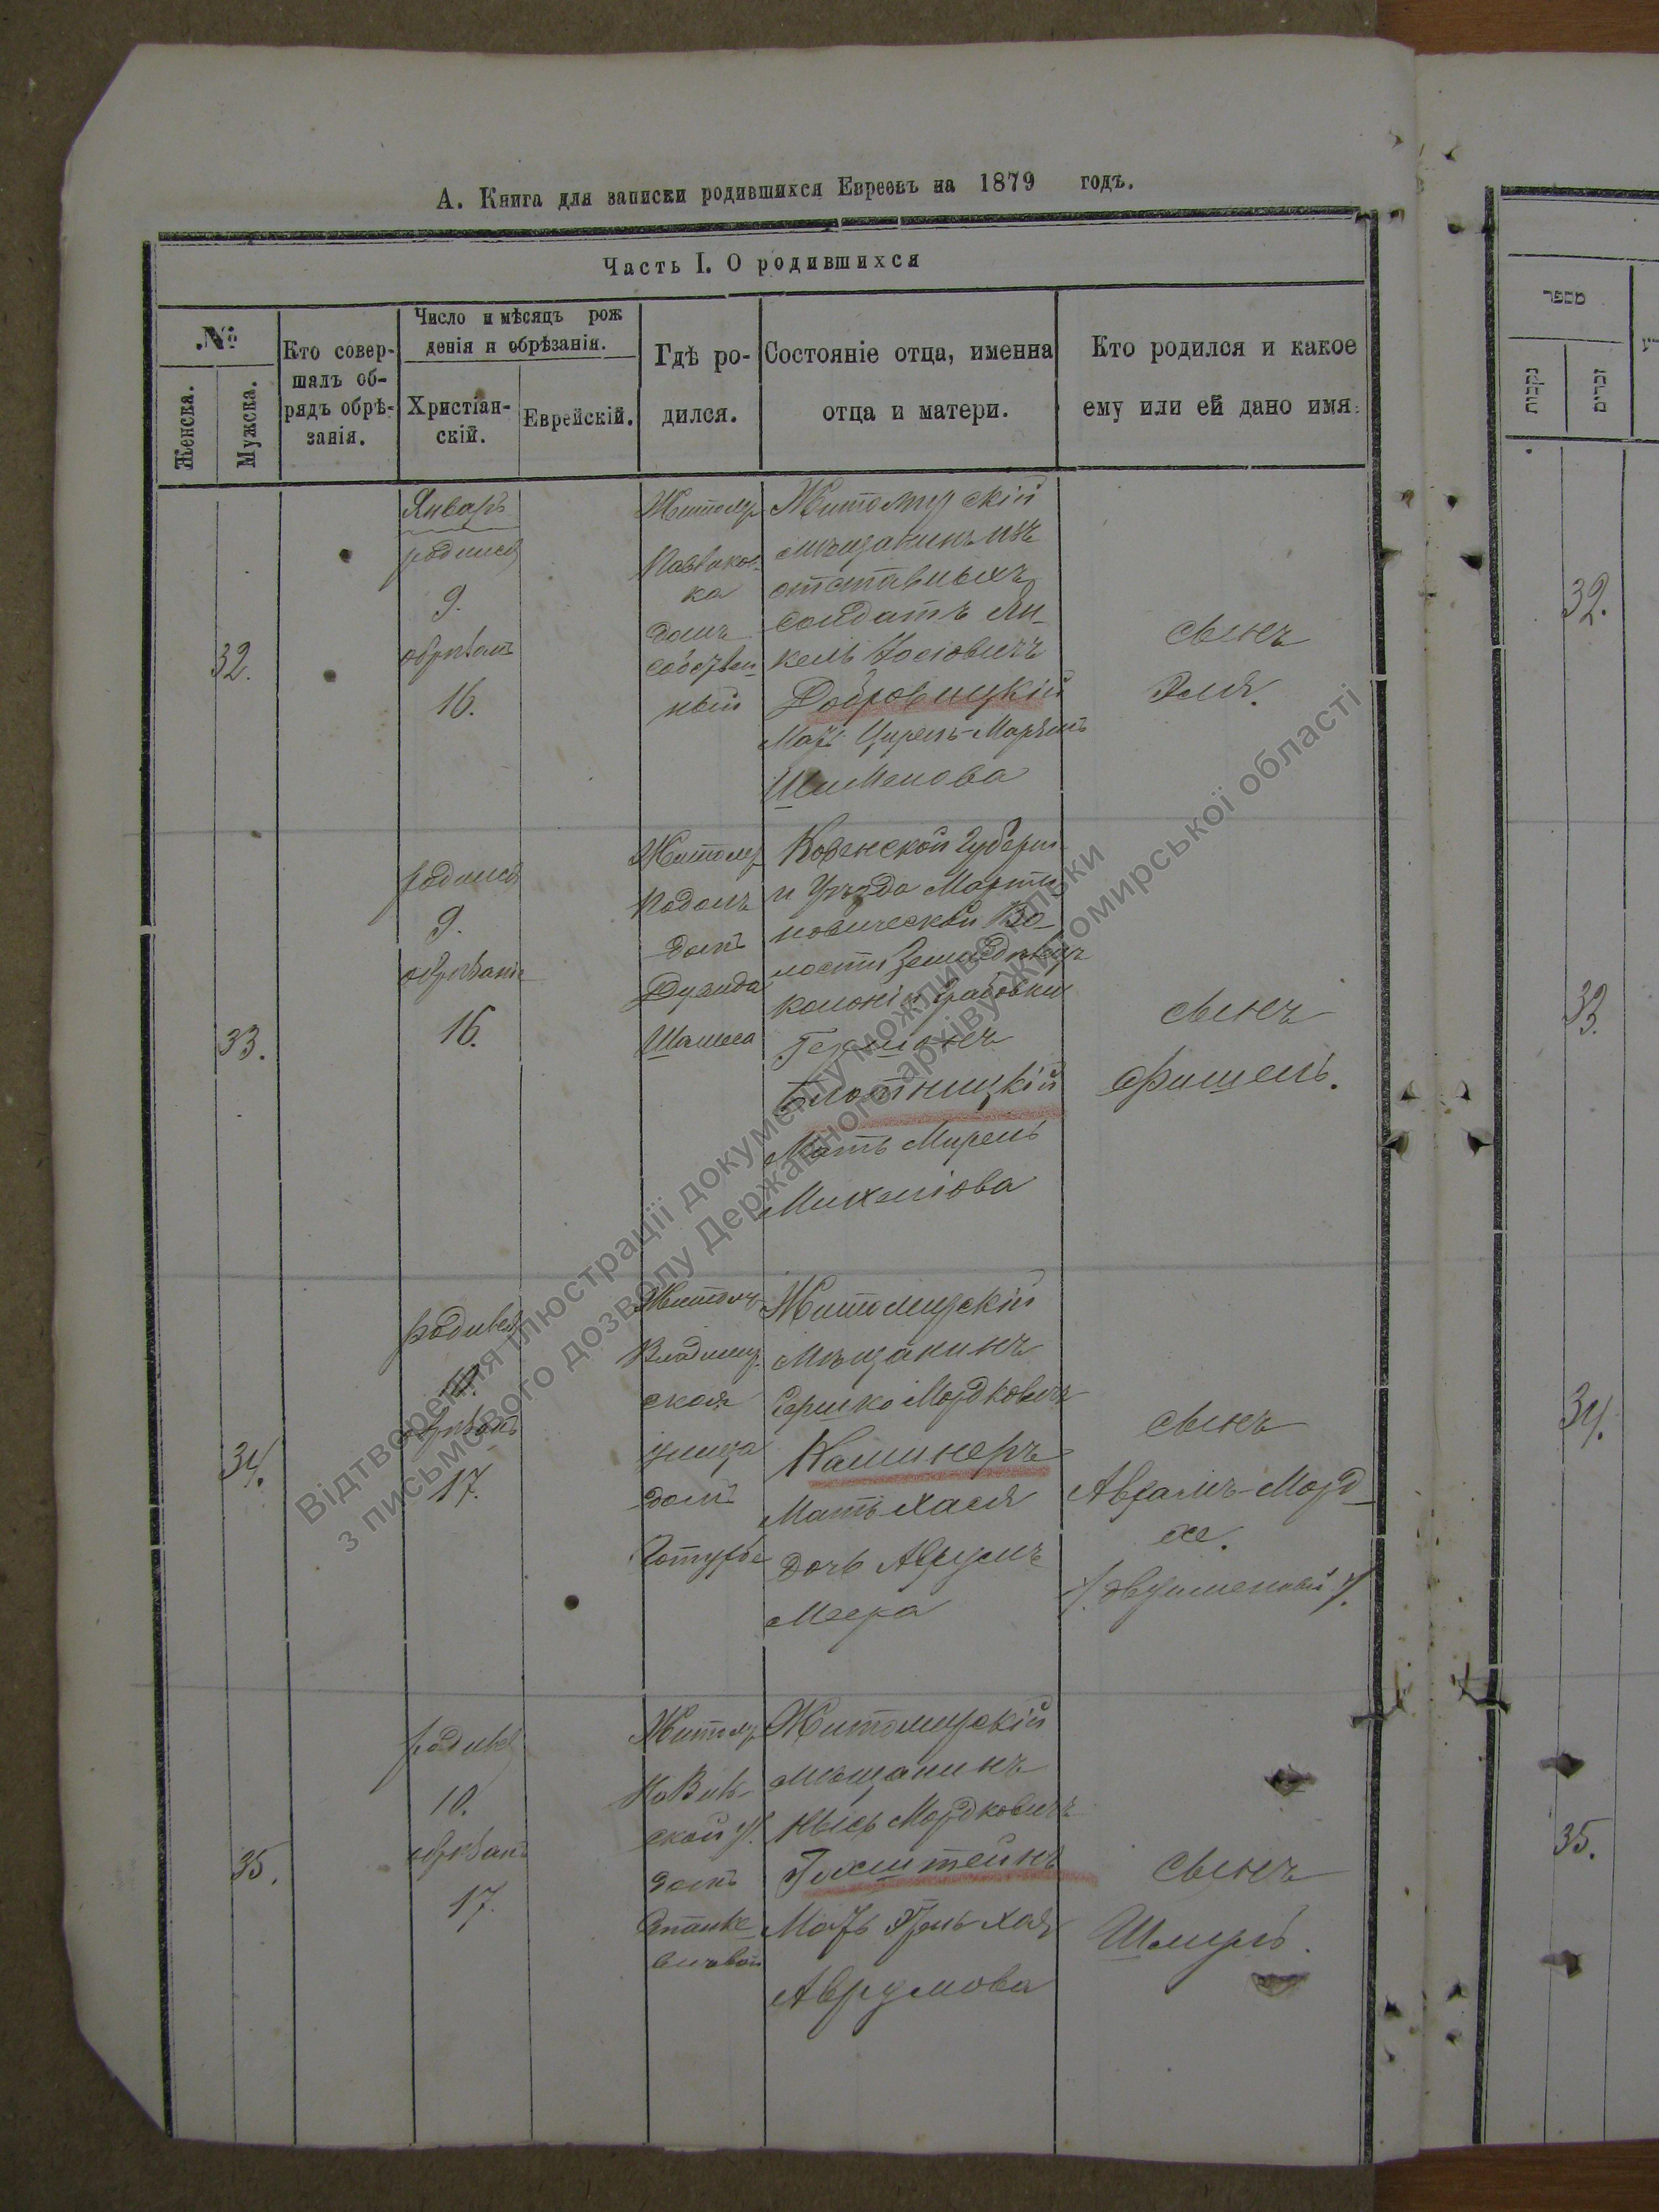 А. Книга для записки родившихся Евреевъ на 1879 годъ.
Часть I. О родившихся
№
Женска.
Мужска.
Кто совер-
шалъ об-
рядъ обрѣ-
занія.
Число и мѣсяцъ рож
денія и обрѣзанія.
Христіан-
скій.
Еврейскій.
Гдѣ ро-
дился.
Состояніе отца, именна
отца и матери.
Кто родился и какое
ему или ей дано имя.
32.
Январь
родился
9.
обрѣзанъ
16.
Житомур
ка
домъ
собствен
ный
Житомурскій
мѣщанинъ изъ
отставныхъ
солдатъ Ян-
кель Іосіовичъ
Добровицкій
Мать Цирель-Марьямъ
Шименова
сынъ
33.
родился
9.
обрѣзаніе
16.
Житомур
Подолъ
домъ
Шамеса
Ковенской Губерн.
и Уѣзда Марти
новической Во-
лости Земледѣлецъ
колоніи
Гершонъ
Блотницкій
Мать Мирель
Михеліова
сынъ
Фишель.
34.
родился
10.
обрѣзанъ
17.
Житомур
Владимир.
ская
улица
домъ
Житомирскій
Мѣщанинъ
Гершко Мордковичъ
Каминеръ
Мать Хася
дочь Аврумъ
Меера
сынъ
Аврамъ-Морд-
хе.
/. двуименный ./.
35.
родился
10.
обрѣзанъ
17.
Житомур
домъ
Станке-
вичевой
Житомирскій
мѣщанинъ
Мордковичъ
Гохштейнъ
Мать Хая
Аврумова
сынъ
Шмерь.
מספר
נקבות
זכרים
32.
33.
34.
35.
Відтворення ілюстрації документу можливе тільки
з письмового дозволу Державного архіву Житомирської області